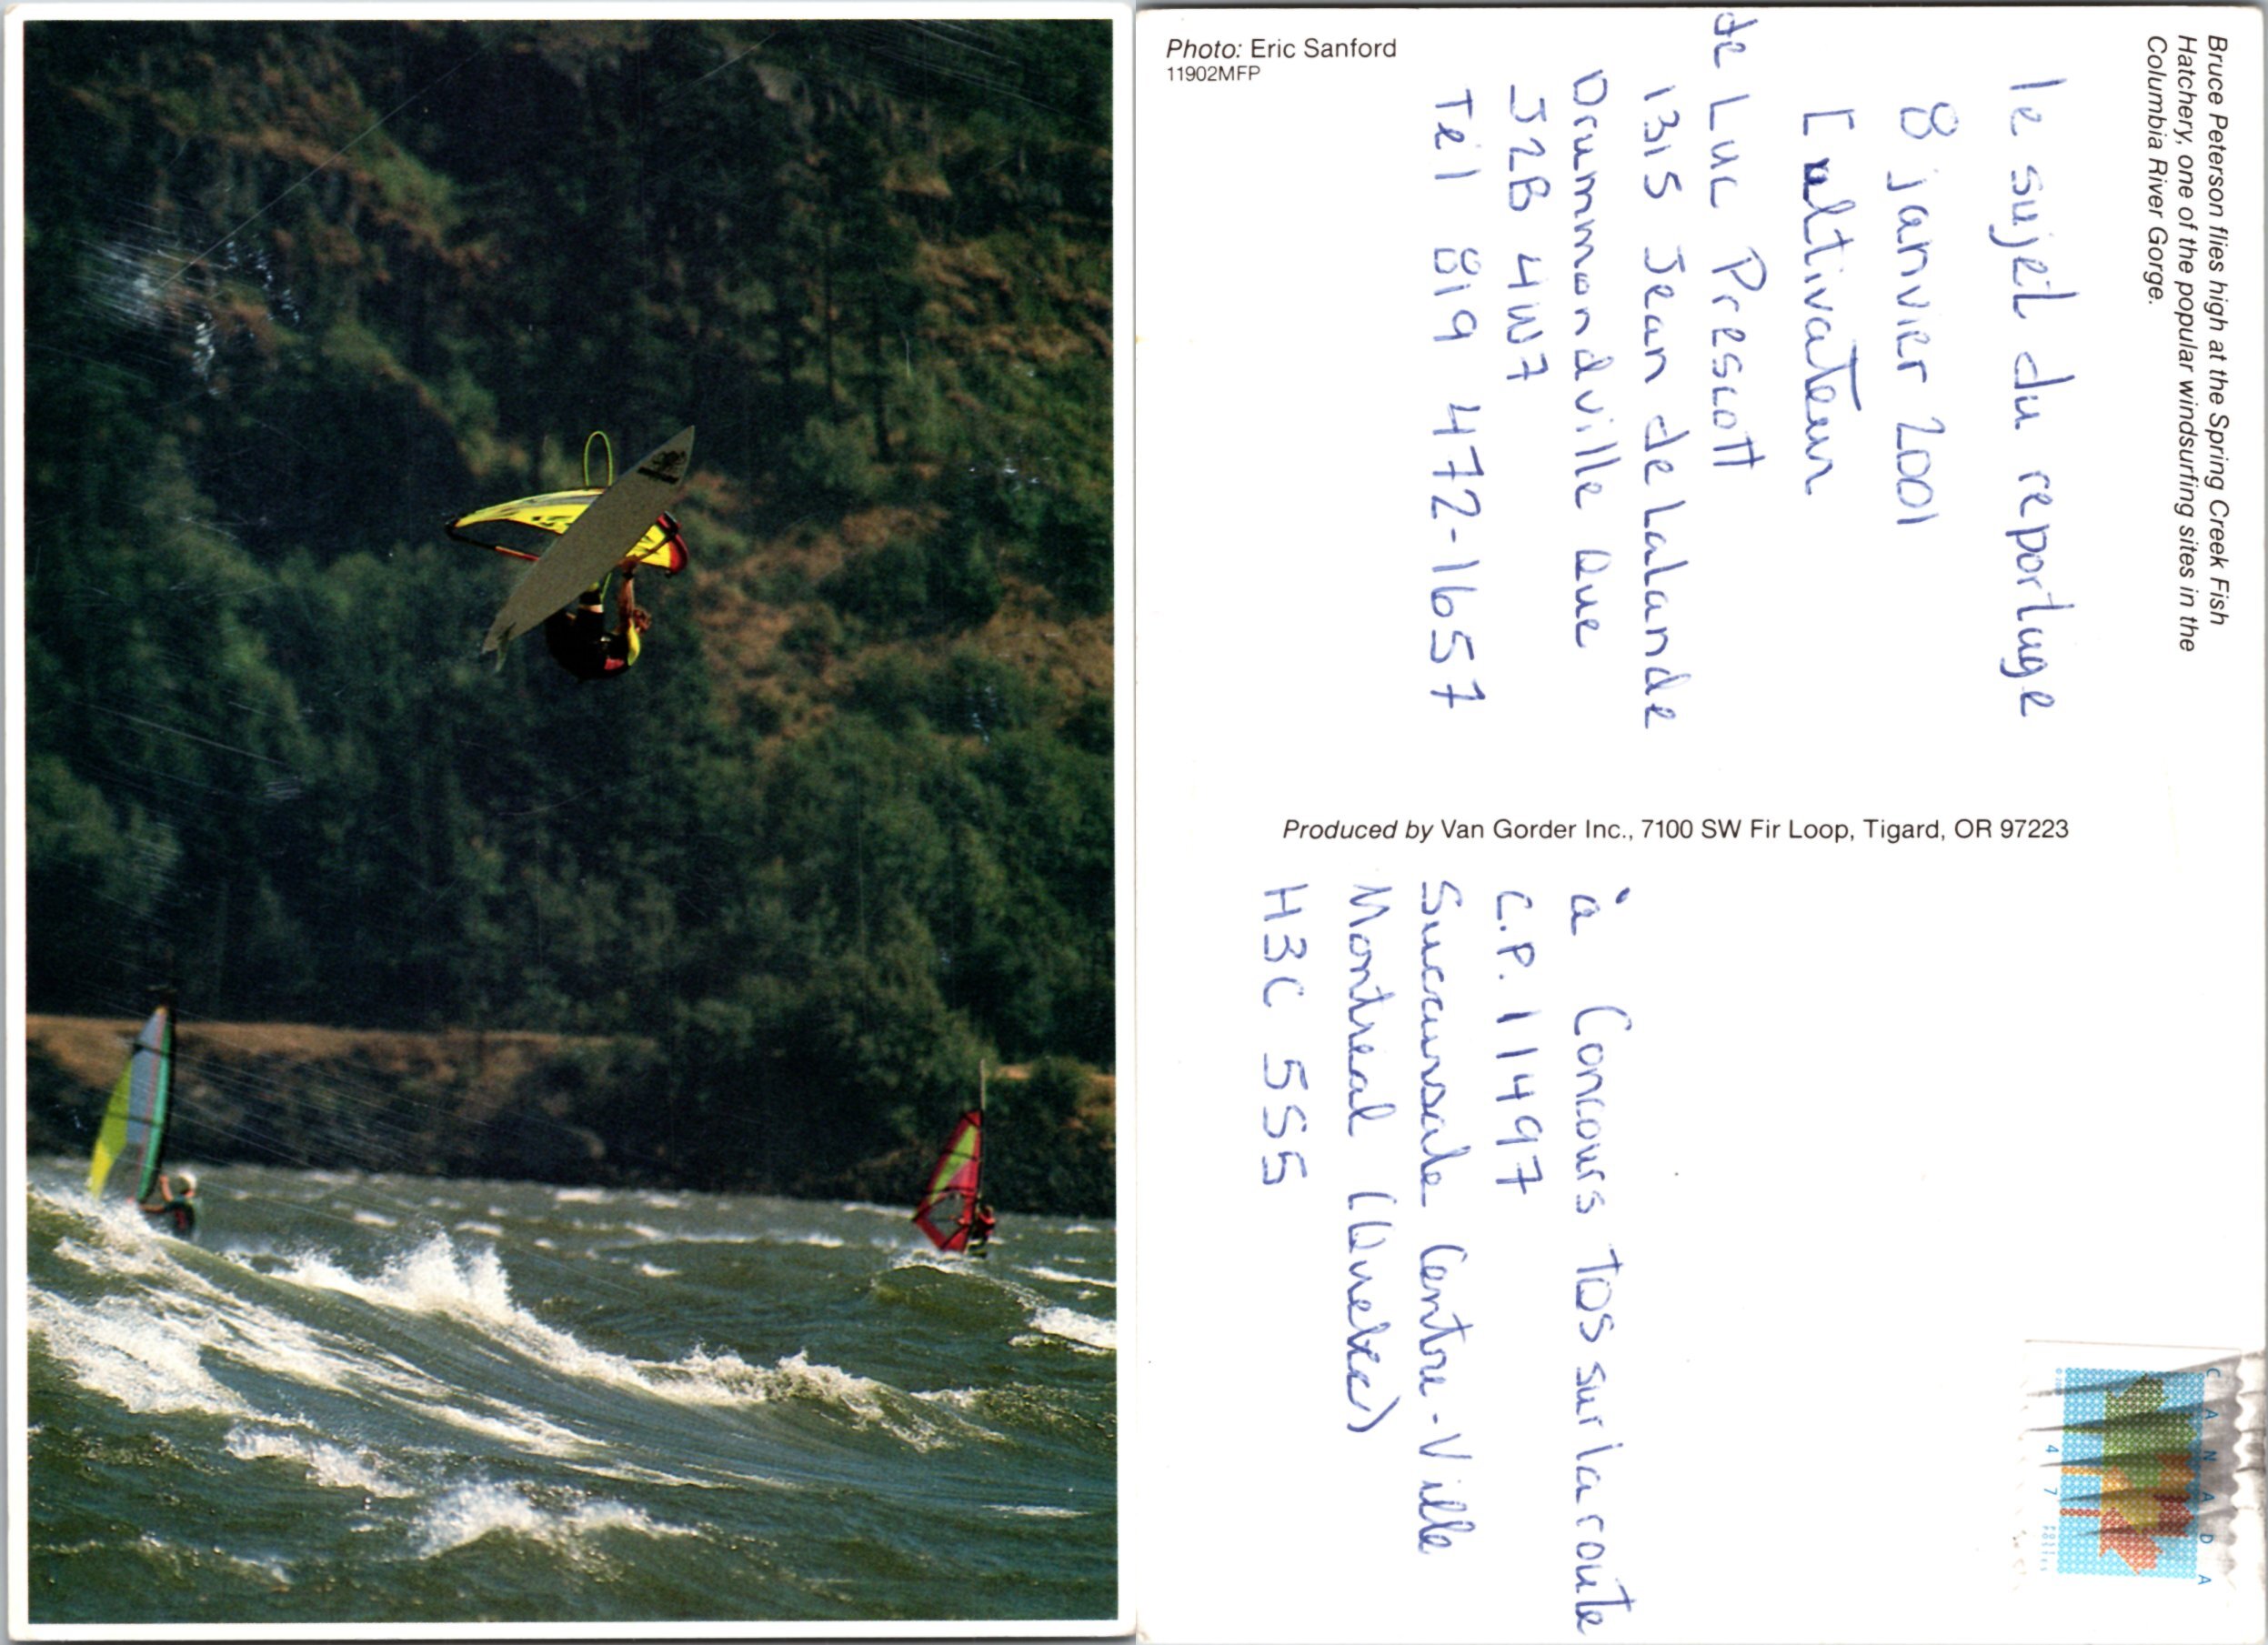 Photo: Eric Sanford
11902MFP
Bruce Peterson flies high at the Spring Creek Fish
Hatchery, one of the popular windsurfing sites in the
Columbia River Gorge.
le sujet du reportage
8 janvier 2001
[ultivateur
de Luc Prescott
1315 Jean de Lalande
Drummondville Que
J2B 4W7
Tél 819 472-1657
Produced by Van Gorder Inc., 7100 SW Fir Loop, Tigard, OR 97223
à Concours TOS sur la route
C.P. 11497
Succursale Centre-Ville
Montréal (Québec)
H3C 5S5
CANADA
47